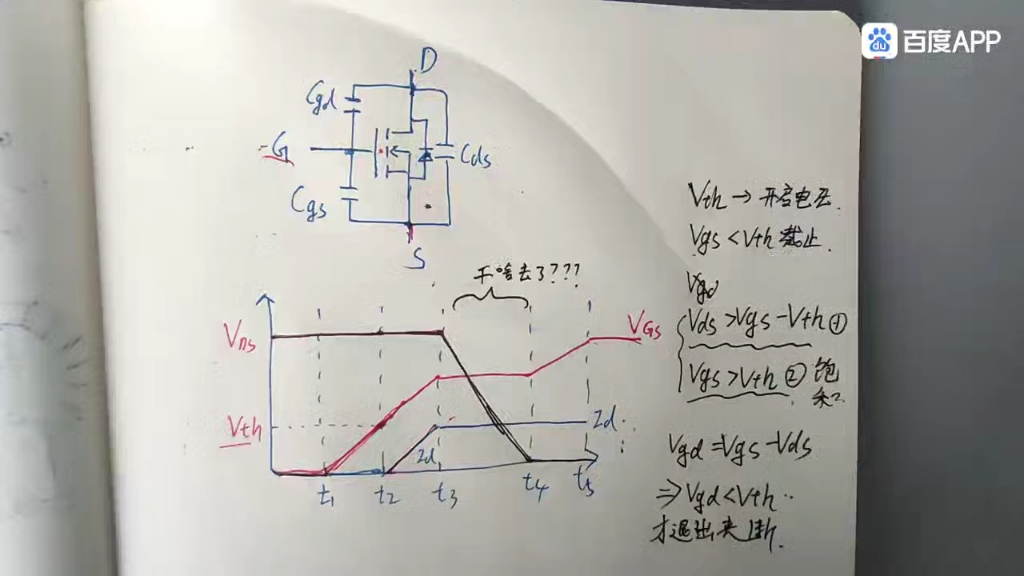 百度APP
D
Cgd
G
Cds
Cgs
S
干啥去了???
VDS
VGS
Vth
Id
Id
t1 t2 t3 t4 t5
Vth → 开启电压.
Vgs < Vth 截止.
Vds > Vgs - Vth ①
Vgs > Vth ② 饱
Vgd = Vgs - Vds
⇒ Vgd < Vth
才退出夹断.